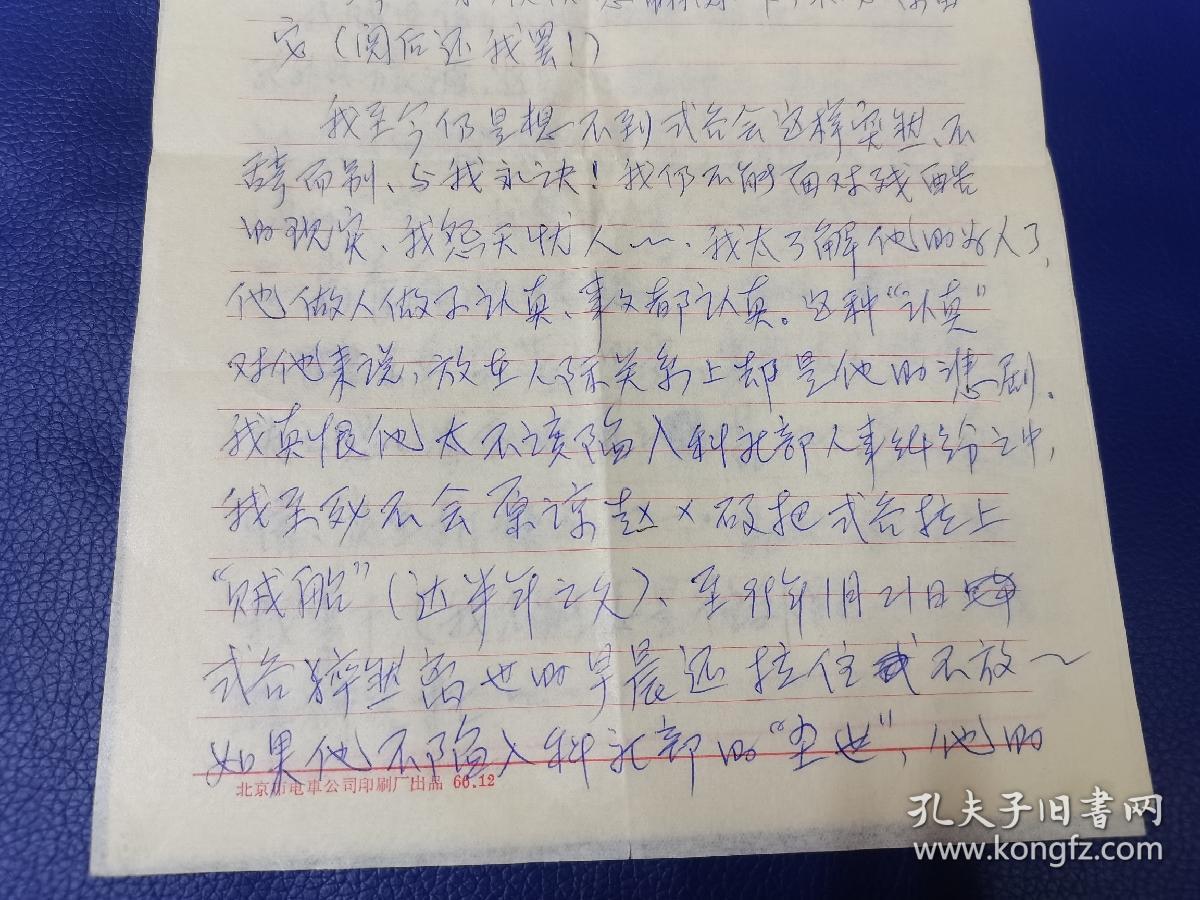 实（阅后还我罢！）
我至今仍是想不到式谷会这样突然、不
辞而别、与我永诀！我仍不能面对残酷
的现实、我怨天忧人～、我太了解他的为人了，
他做人做事认真、事事都认真。这种“认真”
对他来说，放在人际关系上却是他的悲剧。
我真恨他太不该陷入科北部人事纠纷之中，
我至死不会原谅赵×硕把式谷拉上
“贼船”（达半年之久）、至99年1月21日
式谷猝然离世的早晨还拉住不放～
如果他不陷入科北部的“尘世”，他的
北京市电車公司印刷厂出品 66.12
孔夫子旧书网
www.kongfz.com